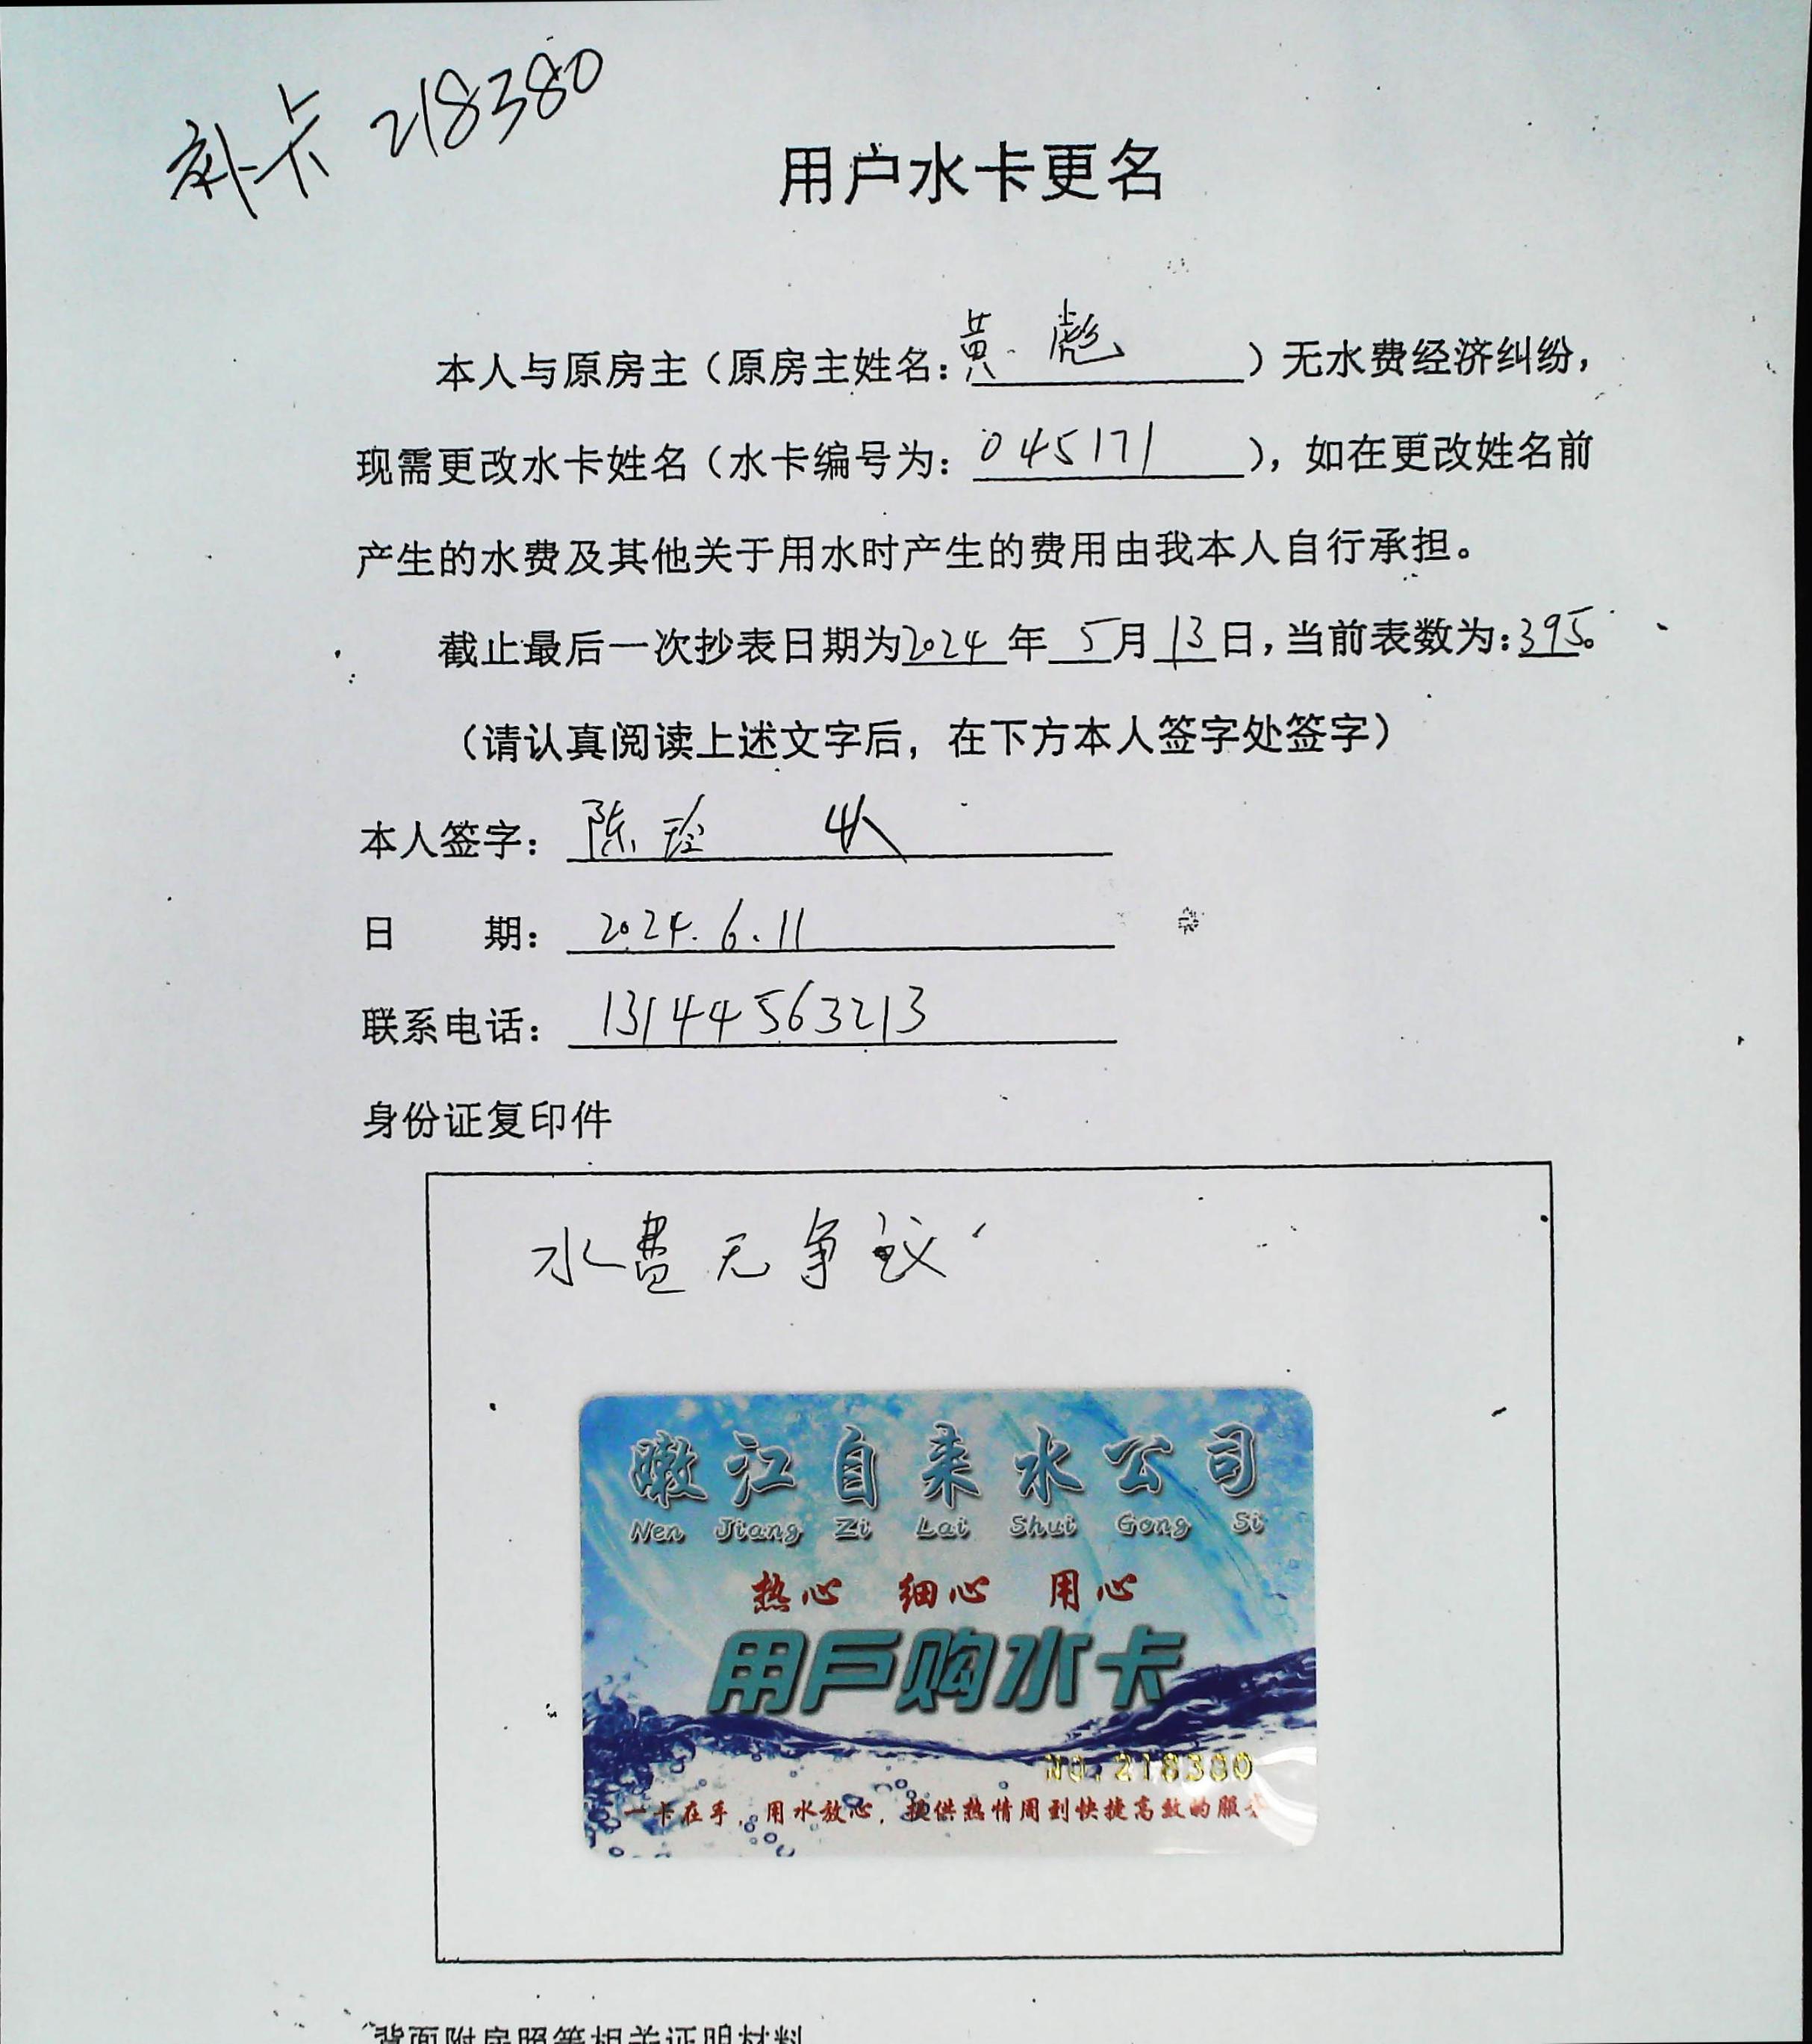 补卡 218380
用户水卡更名
本人与原房主（原房主姓名：黄彪）无水费经济纠纷，
现需更改水卡姓名（水卡编号为：045171），如在更改姓名前
产生的水费及其他关于用水时产生的费用由我本人自行承担。
截止最后一次抄表日期为2024年5月13日，当前表数为：395。
（请认真阅读上述文字后，在下方本人签字处签字）
本人签字：陈玲
日 期：2024.6.11
联系电话：13144563213
身份证复印件
水费无争议
嫩江自来水公司
Nen Jiang Zi Lai Shui Gong Si
热心 细心 用心
用户购水卡
NO.218380
一卡在手，用水放心，提供热情周到快捷高效的服务
背面附房照等相关证明材料